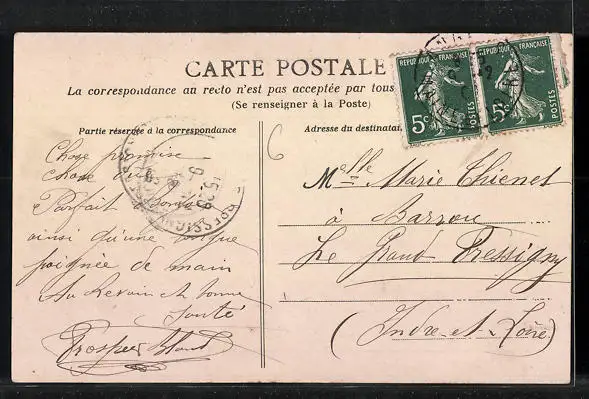 CARTE POSTALE
La correspondance au recto n'est pas acceptée par tous
(Se renseigner à la Poste)
Partie réservée à la correspondance
Adresse du destinatai
RÉPUBLIQUE FRANÇAISE
5c
POSTES
RÉPUBLIQUE FRANÇAISE
5c
POSTES
Chose promise
chose due
Parfait
ainsi qu'une
poignée de main
Au Revoir et bonne
Santé
Prosper
6
Melle Marie Thienet
à Barrou
Le Grand Pressigny
(Indre et Loire)